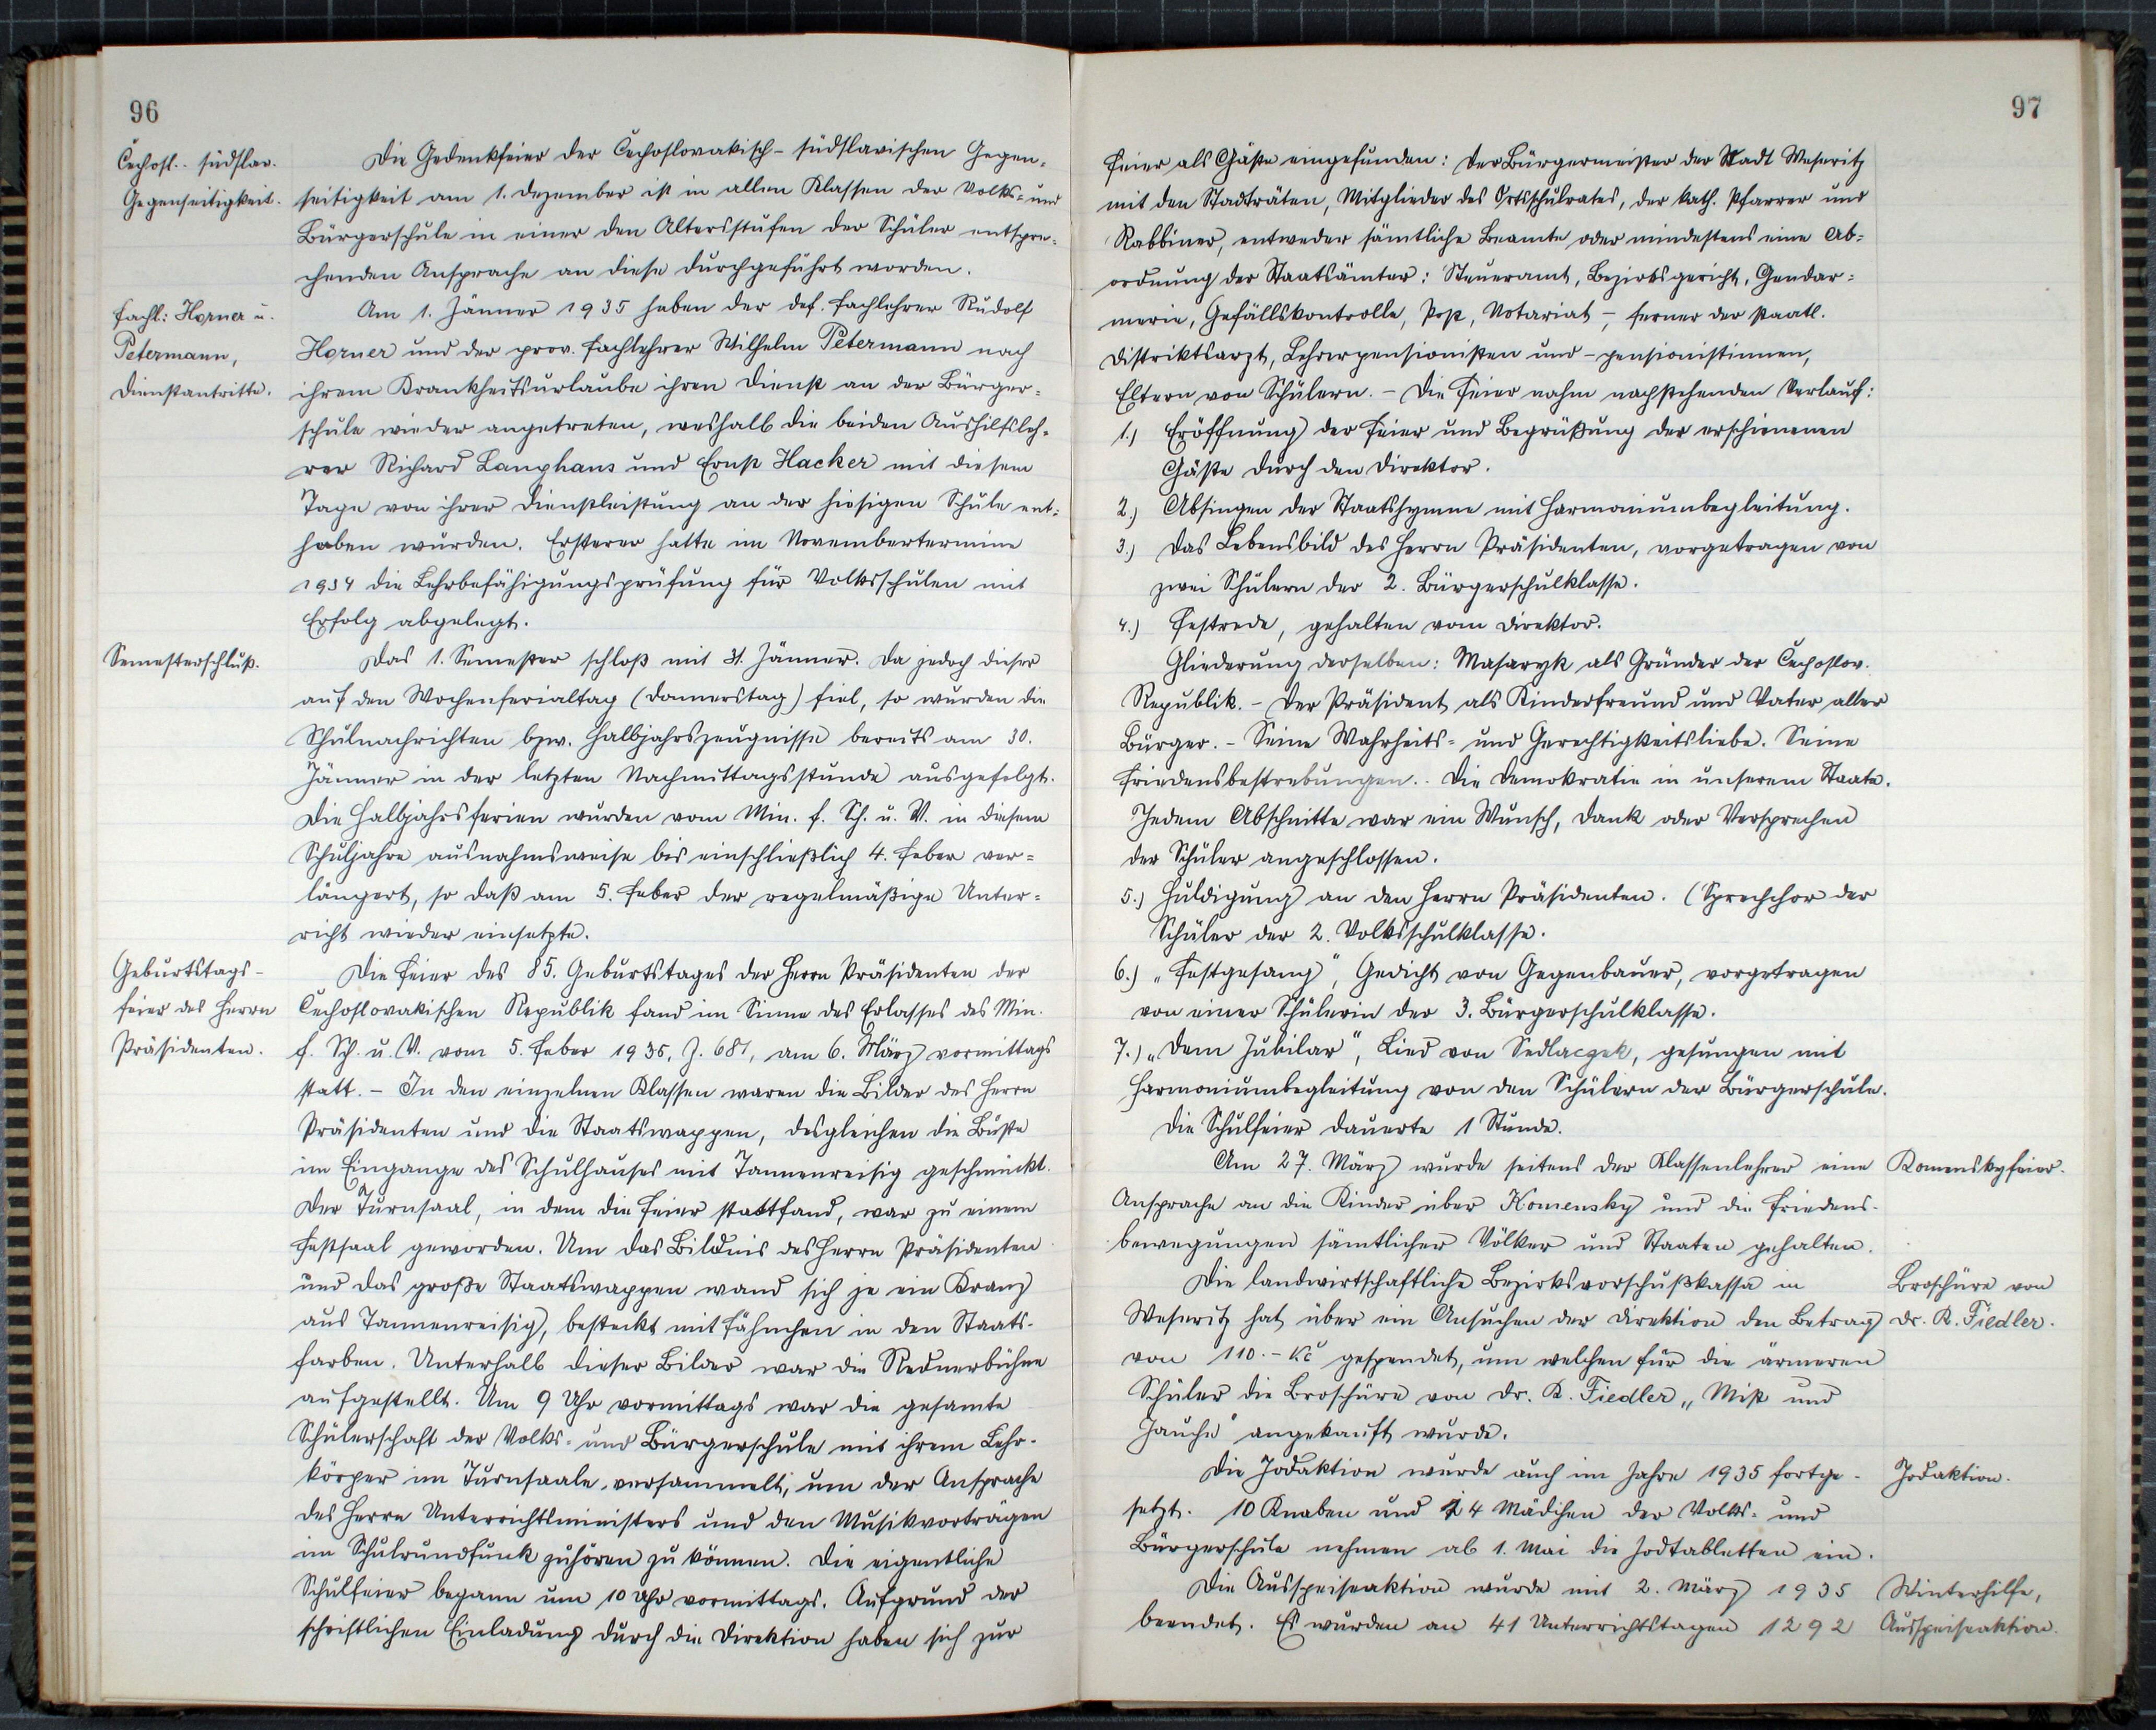 96
Čechosl.- südslav.
Gegenseitigkeit.
Die Gedenkfeier der Čechoslovakisch-südslavischen Gegen-
seitigkeit am 1. Dezember ist in allen Klassen der Volks- und
Bürgerschule in einer den Altersstufen der Schüler entspre-
chenden Ansprache an diese durchgeführt worden.
Fachl: Horner u.
Petermann,
Dienstantritte.
Am 1. Jänner 1935 haben der def. Fachlehrer Rudolf
Horner und der prov. Fachlehrer Wilhelm Petermann nach
ihrem Krankheitsurlaube ihren Dienst an der Bürger-
schule wieder angetreten, weshalb die beiden Aushilfsleh-
rer Richard Langhans und Ernst Hacker mit diesem
Tage von ihrer Dienstleistung an der hiesigen Schule ent-
hoben wurden. Ersterer hatte im Novembertermine
1934 die Lehrbefähigungsprüfung für Volksschulen mit
Erfolg abgelegt.
Semesterschluß.
Das 1. Semester schloß mit 31. Jänner. Da jedoch dieser
auf den Wochenferialtag (Donnerstag) fiel, so wurden die
Schulnachrichten bzw. Halbjahrszeugnisse bereits am 30.
Jänner in der letzten Nachmittagsstunde ausgefolgt.
Die Halbjahrsferien wurden vom Min. f. Sch. u. V. in diesem
Schuljahre ausnahmsweise bis einschließlich 4. Feber ver-
längert, so daß am 5. Feber der regelmäßige Unter-
richt wieder einsetzte.
Geburtstags-
feier des Herrn
Präsidenten.
Die Feier des 85. Geburtstages des Herrn Präsidenten der
Čechoslovakischen Republik fand im Sinne des Erlasses des Min.
f. Sch. u. V. vom 5. Feber 1935, Z. 681, am 6. März vormittags
statt. - In den einzelnen Klassen waren die Bilder des Herrn
Präsidenten und die Staatswappen, desgleichen die Büste
im Eingange des Schulhauses mit Tannenreisig geschmückt.
Der Turnsaal, in dem die Feier stattfand, war zu einem
Festsaal geworden. Um das Bildnis des Herrn Präsidenten
und das große Staatswappen wand sich je ein Kranz
aus Tannenreisig, besteckt mit Fähnchen in den Staats-
farben. Unterhalb dieser Bilder war die Rednerbühne
aufgestellt. Um 9 Uhr vormittags war die gesamte
Schülerschaft der Volks- und Bürgerschule mit ihrem Lehr-
körper im Turnsaale versammelt, um der Ansprache
des Herrn Unterrichtsministers und den Musikvorträgen
im Schulrundfunk zuhören zu können. Die eigentliche
Schulfeier begann um 10 Uhr vormittags. Aufgrund der
schriftlichen Einladung durch die Direktion haben sich zur
97
Feier als Gäste eingefunden: Der Bürgermeister der Stadt Weseritz
mit den Stadträten, Mitglieder des Ortsschulrates, der kath. Pfarrer und
Rabbiner, entweder sämtliche Beamte oder mindestens eine Ab-
ordnung der Staatsämter: Steueramt, Bezirksgericht, Gendar-
merie, Gefällskontrolle, Post, Notariat -, ferner der staatl.
Distriktsarzt, Lehrerpensionisten und -pensionistinnen,
Eltern von Schülern. - Die Feier nahm nachstehenden Verlauf:
1.) Eröffnung der Feier und Begrüßung der erschienenen
Gäste durch den Direktor.
2.) Absingen der Staatshymne mit Harmoniumbegleitung.
3.) Das Lebensbild des Herrn Präsidenten, vorgetragen von
zwei Schülern der 2. Bürgerschulklasse.
4.) Festrede, gehalten vom Direktor.
Gliederung derselben: Masaryk als Gründer der Čechoslov.
Republik. - Der Präsident als Kinderfreund und Vater aller
Bürger. - Seine Wahrheits- und Gerechtigkeitsliebe. Seine
Friedensbestrebungen. - Die Demokratie in unserem Staate.
Jedem Abschnitte war ein Wunsch, Dank oder Versprechen
der Schüler angeschlossen.
5.) Huldigung an den Herrn Präsidenten. (Sprechchor der
Schüler der 2. Volksschulklasse.
6.) "Festgesang", Gedicht von Gegenbauer, vorgetragen
von einer Schülerin der 3. Bürgerschulklasse.
7.) "Dem Jubilar", Lied von Sedlaczek, gesungen mit
Harmoniumbegleitung von den Schülern der Bürgerschule.
Die Schulfeier dauerte 1 Stunde.
Am 27. März wurde seitens der Klassenlehrer eine
Ansprache an die Kinder über Komensky und die Friedens-
bewegungen sämtlicher Völker und Staaten gehalten.
Komenskyfeier.
Die landwirtschaftliche Bezirksvorschußkassa in
Weseritz hat über ein Ansuchen der Direktion den Betrag
von 110.- Kč gespendet, um welchen für die ärmeren
Schüler die Broschüre von Dr. K. Fiedler "Mist und
Jauche" angekauft wurde.
Broschüre von
Dr. K. Fiedler.
Die Jodaktion wurde auch im Jahre 1935 fortge-
setzt. 10 Knaben und 24 Mädchen der Volks- und
Bürgerschule nehmen ab 1. Mai die Jodtabletten ein.
Jodaktion.
Die Ausspeiseaktion wurde mit 2. März 1935
beendet. Es wurden an 41 Unterrichtstagen 1292
Winterhilfe,
Ausspeiseaktion.